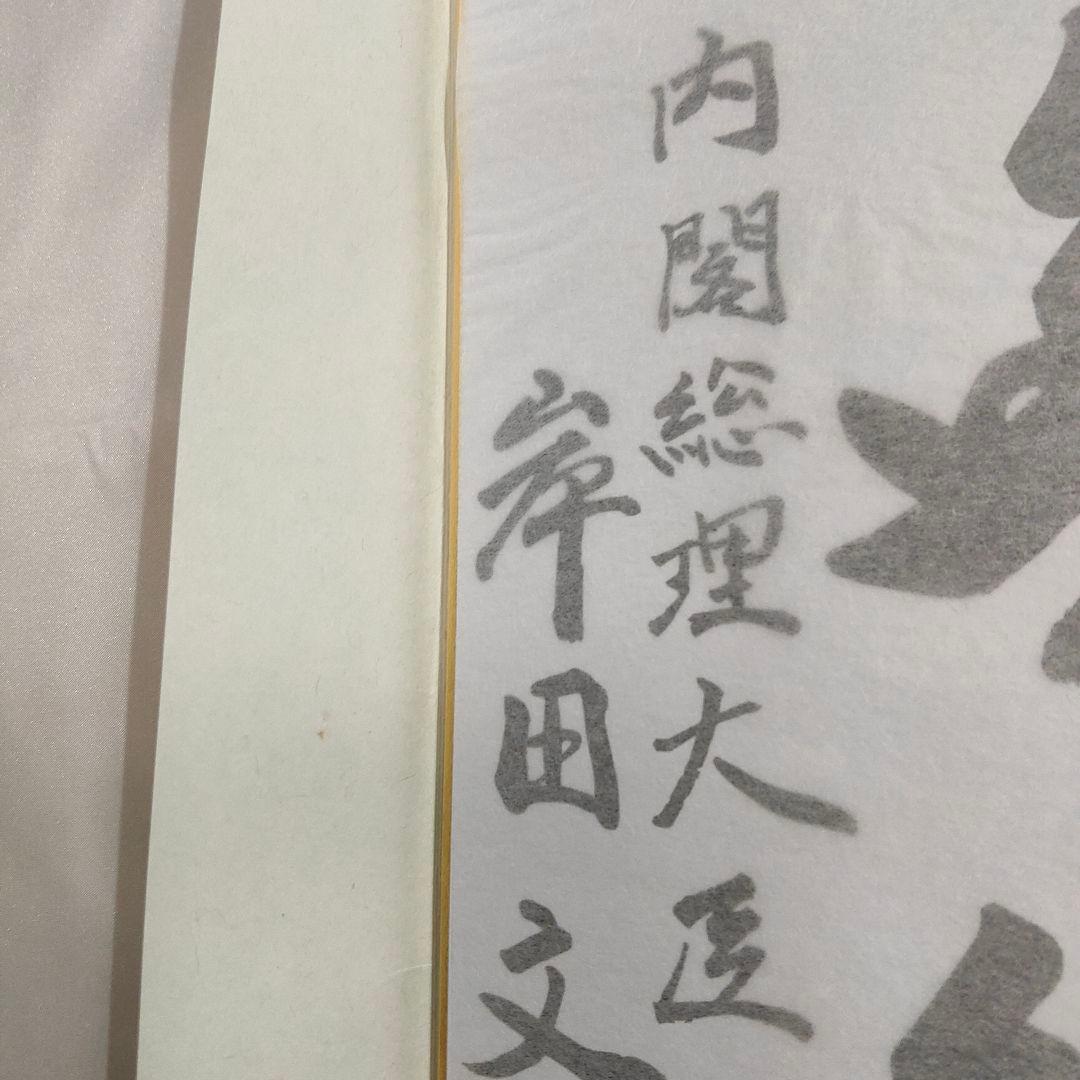 内閣総理大臣
岸田文